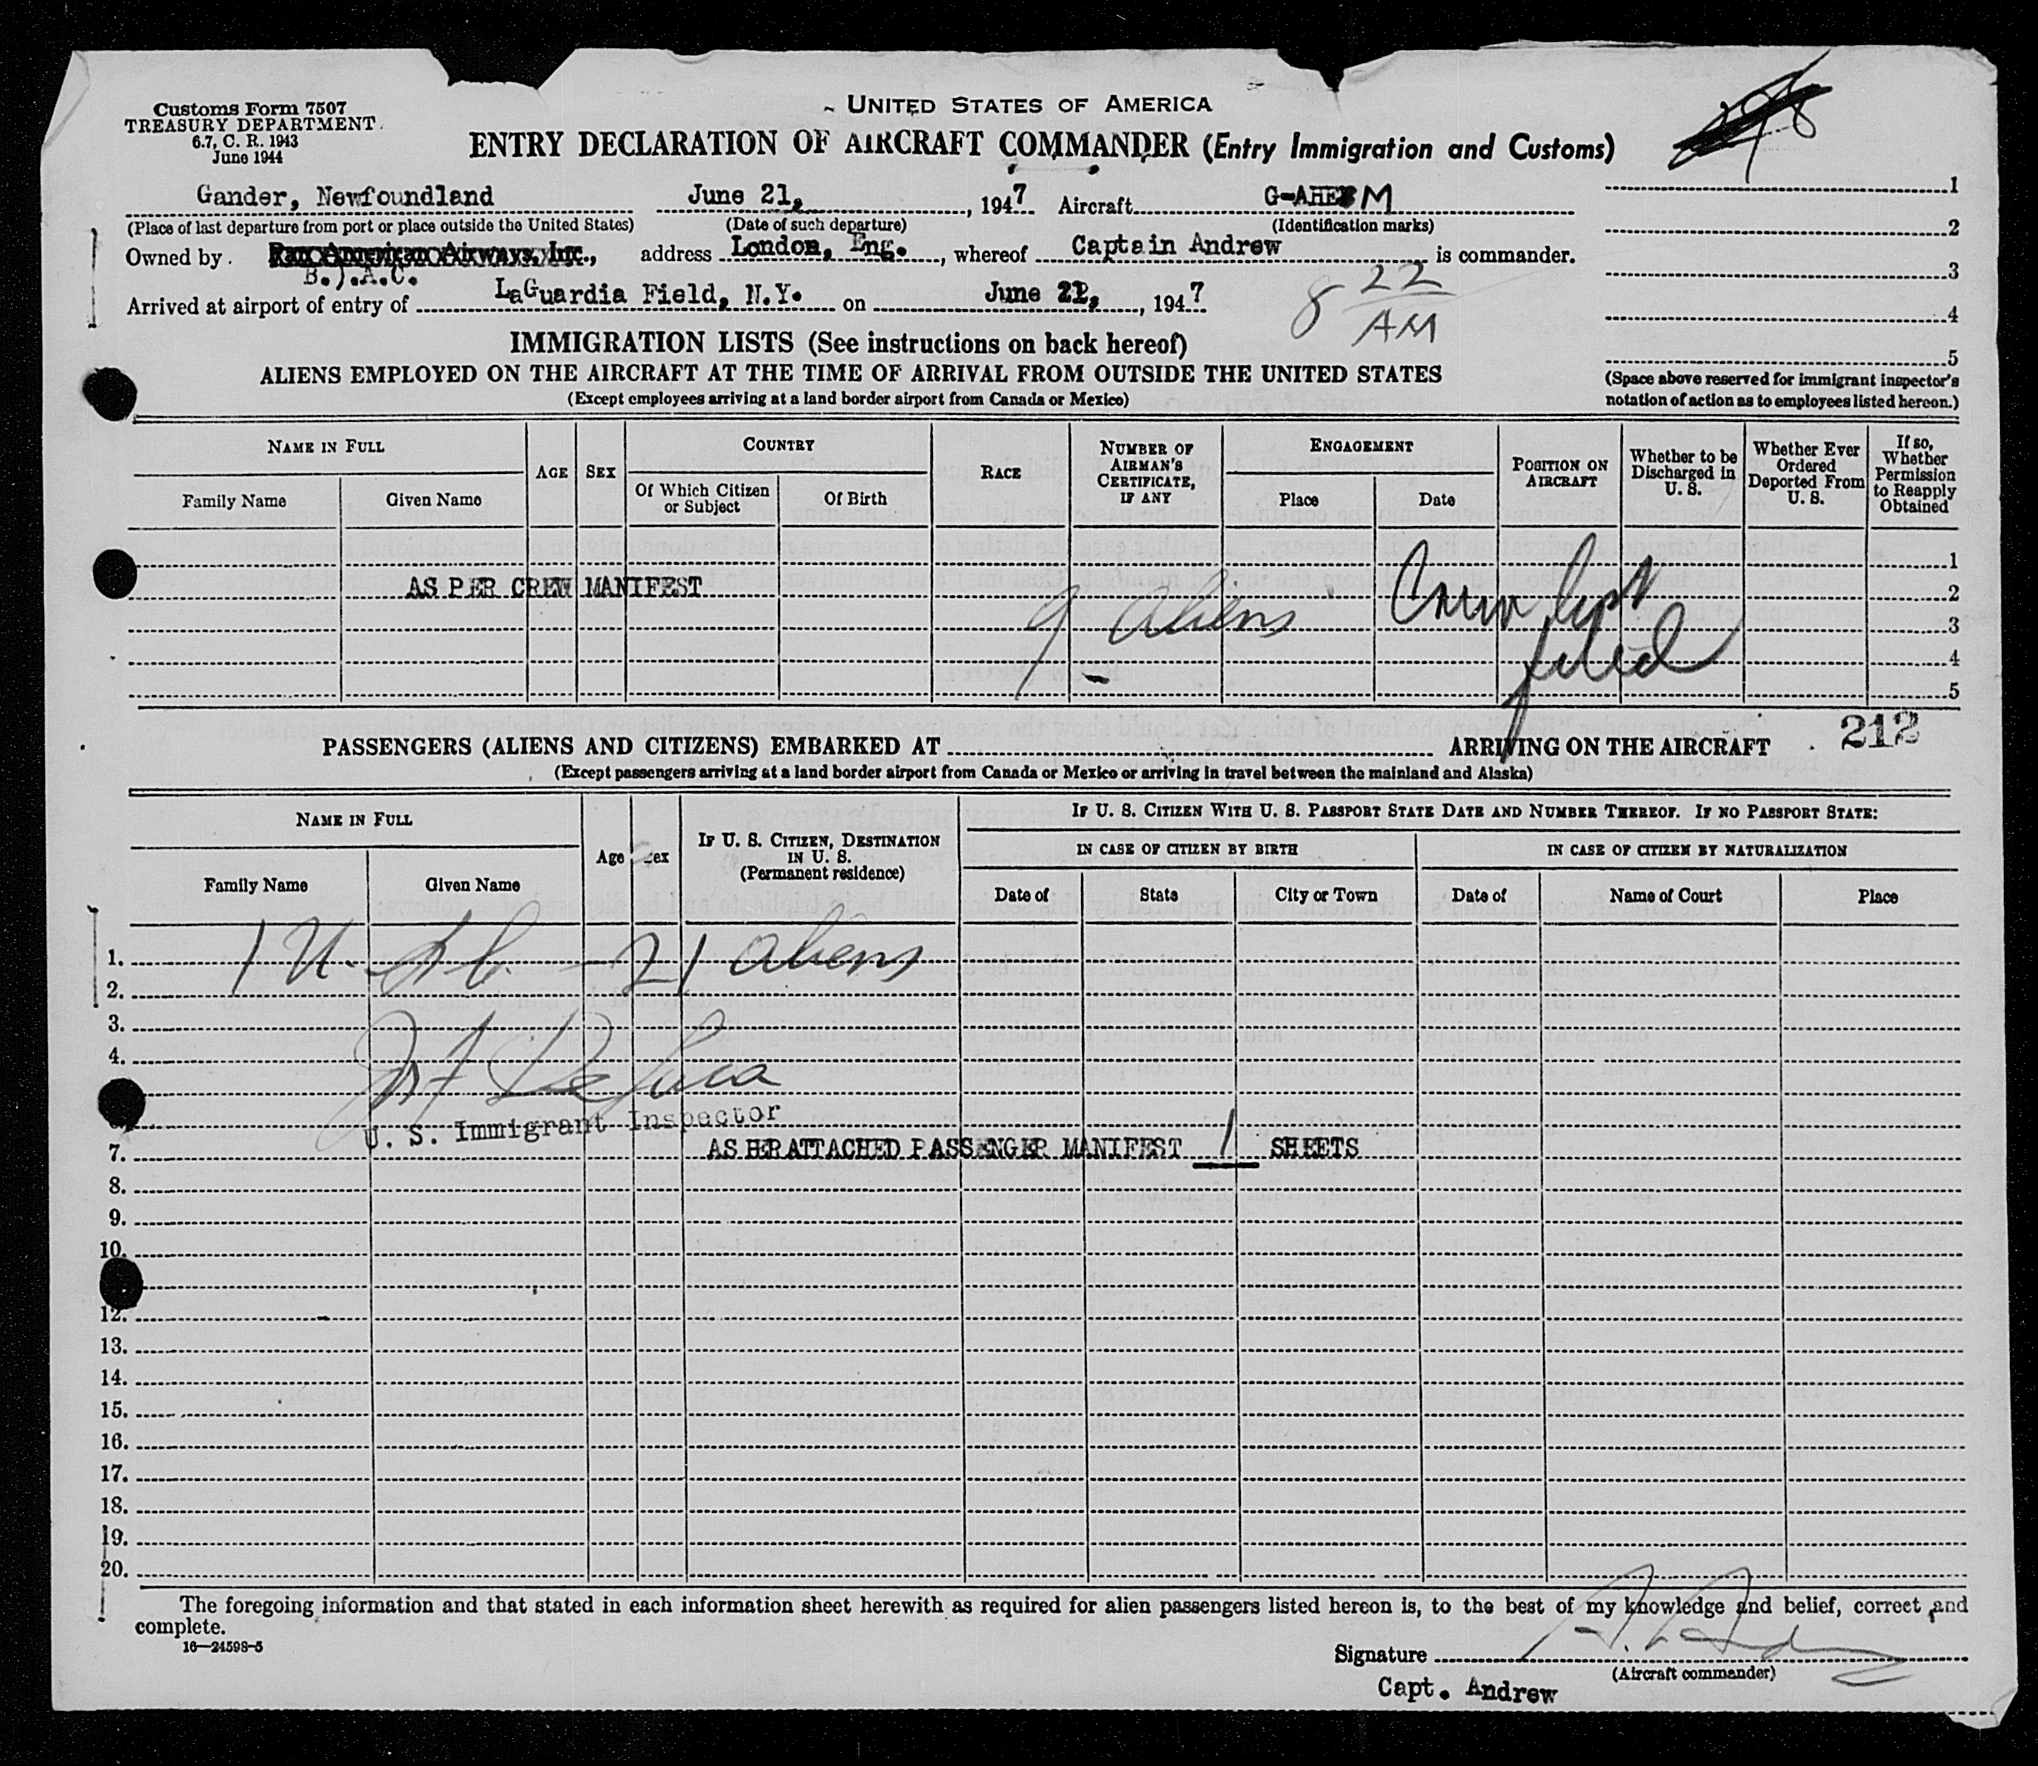 Customs Form 7507
TREASURY DEPARTMENT
6.7, C. R. 1943
June 1944
UNITED STATES OF AMERICA
ENTRY DECLARATION OF AIRCRAFT COMMANDER (Entry Immigration and Customs)
Gander, Newfoundland June 21, , 1947 Aircraft G-AHEM 1
(Place of last departure from port or place outside the United States) (Date of such departure) (Identification marks) 2
Owned by Pan American Airways, Inc., address London, Eng. , whereof Captain Andrew is commander. 3
B.O.A.C.
Arrived at airport of entry of LaGuardia Field, N.Y. on June 22, , 1947 8 22 AM 4
IMMIGRATION LISTS (See instructions on back hereof) 5
ALIENS EMPLOYED ON THE AIRCRAFT AT THE TIME OF ARRIVAL FROM OUTSIDE THE UNITED STATES
(Except employees arriving at a land border airport from Canada or Mexico)
(Space above reserved for immigrant inspector's
notation of action as to employees listed hereon.)
NAME IN FULL
Family Name
Given Name
AGE
SEX
COUNTRY
Of Which Citizen
or Subject
Of Birth
RACE
NUMBER OF
AIRMAN'S
CERTIFICATE,
IF ANY
ENGAGEMENT
Place
Date
POSITION ON
AIRCRAFT
Whether to be
Discharged in
U. S.
Whether Ever
Ordered
Deported From
U. S.
If so,
Whether
Permission
to Reapply
Obtained
1
AS PER CREW MANIFEST 9 Aliens Crew list 2
filed 3
4
5
212
PASSENGERS (ALIENS AND CITIZENS) EMBARKED AT ARRIVING ON THE AIRCRAFT
(Except passengers arriving at a land border airport from Canada or Mexico or arriving in travel between the mainland and Alaska)
NAME IN FULL
Family Name
Given Name
Age
Sex
IF U. S. CITIZEN, DESTINATION
IN U. S.
(Permanent residence)
IF U. S. CITIZEN WITH U. S. PASSPORT STATE DATE AND NUMBER THEREOF. IF NO PASSPORT STATE:
IN CASE OF CITIZEN BY BIRTH
Date of
State
City or Town
IN CASE OF CITIZEN BY NATURALIZATION
Date of
Name of Court
Place
1. 1 U.S.C. - 21 Aliens
2.
3.
4.
U. S. Immigrant Inspector
7. AS PER ATTACHED PASSENGER MANIFEST 1 SHEETS
8.
9.
10.
12.
13.
14.
15.
16.
17.
18.
19.
20.
The foregoing information and that stated in each information sheet herewith as required for alien passengers listed hereon is, to the best of my knowledge and belief, correct and
complete.
16—24598-5
Signature
(Aircraft commander)
Capt. Andrew